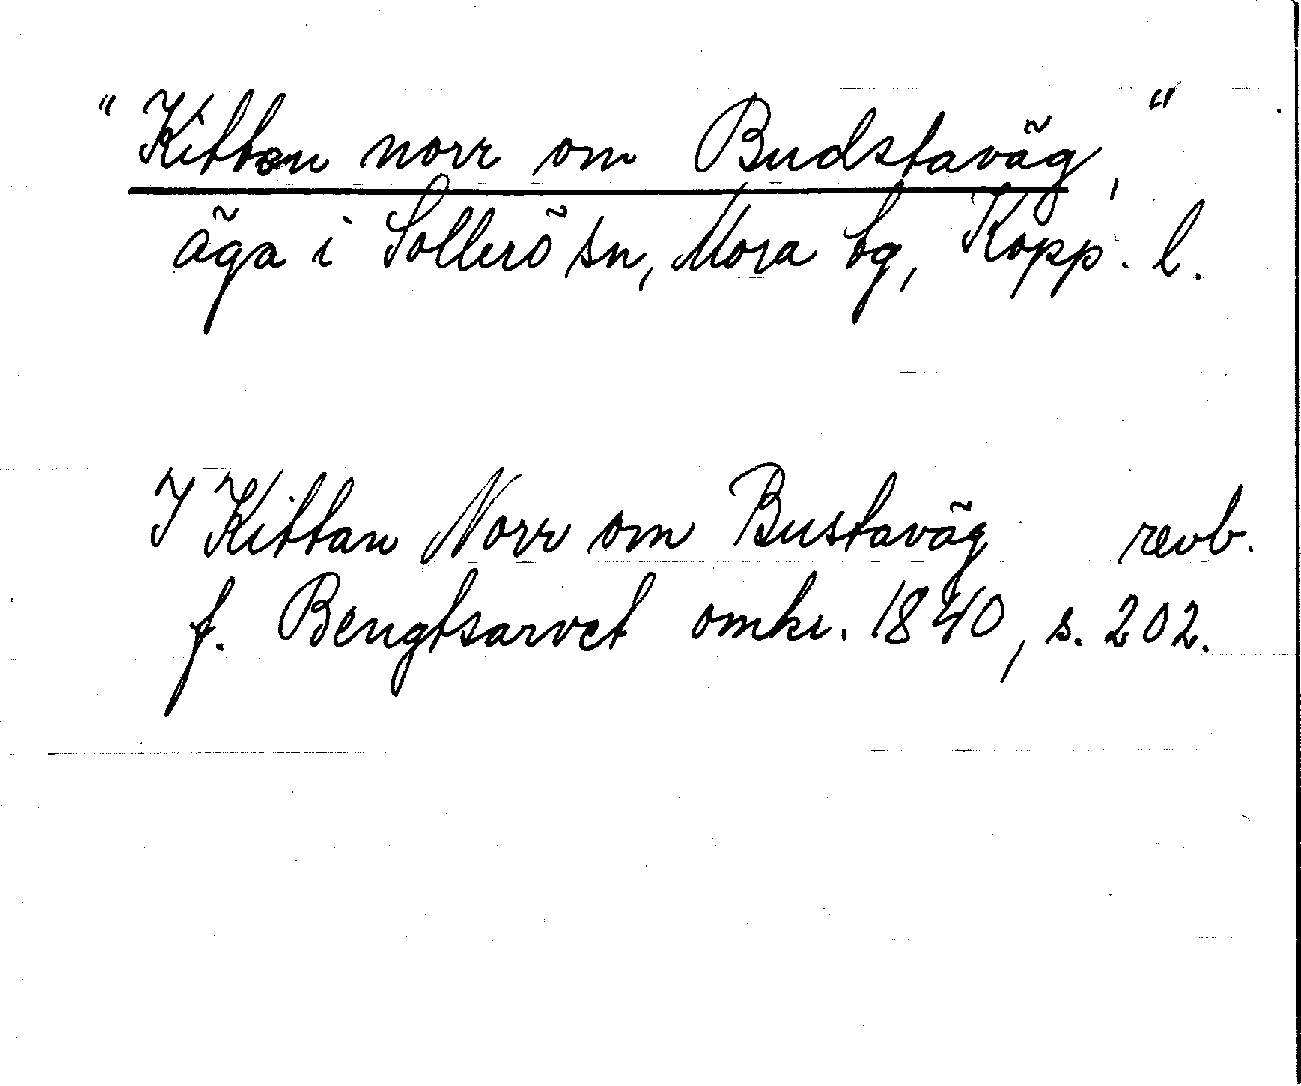 "Kittan norr om Budstaväg,"
äga i Sollerö sn, Mora bg, Kopp. l.
I Kittan Norr om Bustaväg revb.
f. Bengtsarvet omkr. 1840, s. 202.